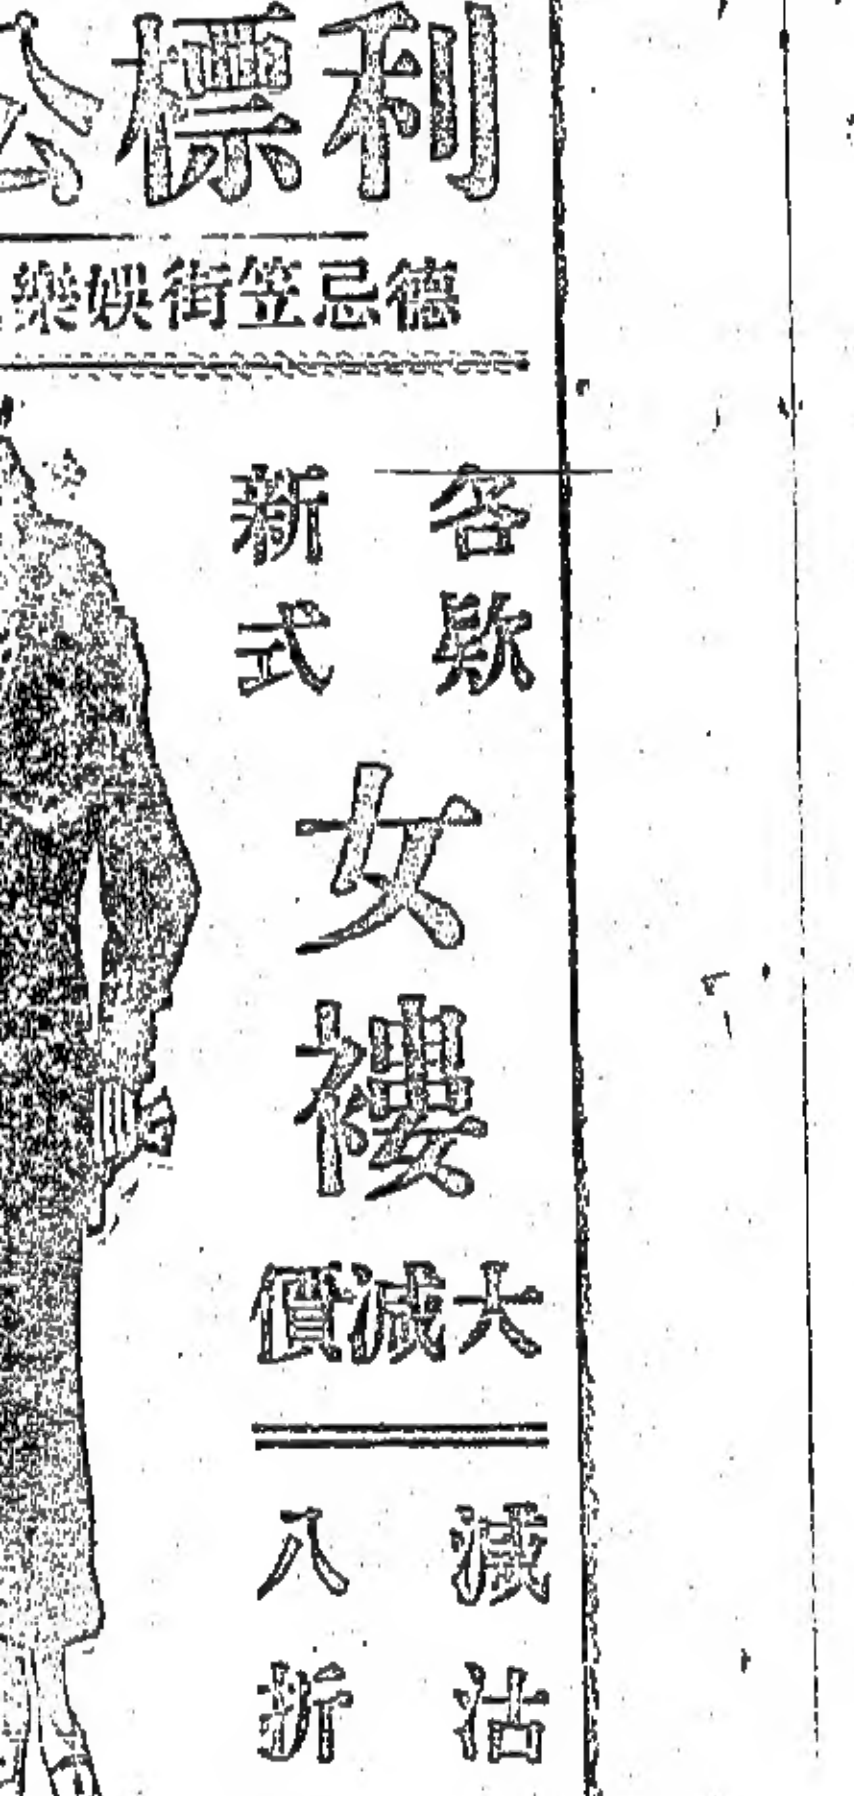 利標公
德忌笠街娛樂
各款
新式
女褸
大減價
減沽
八折